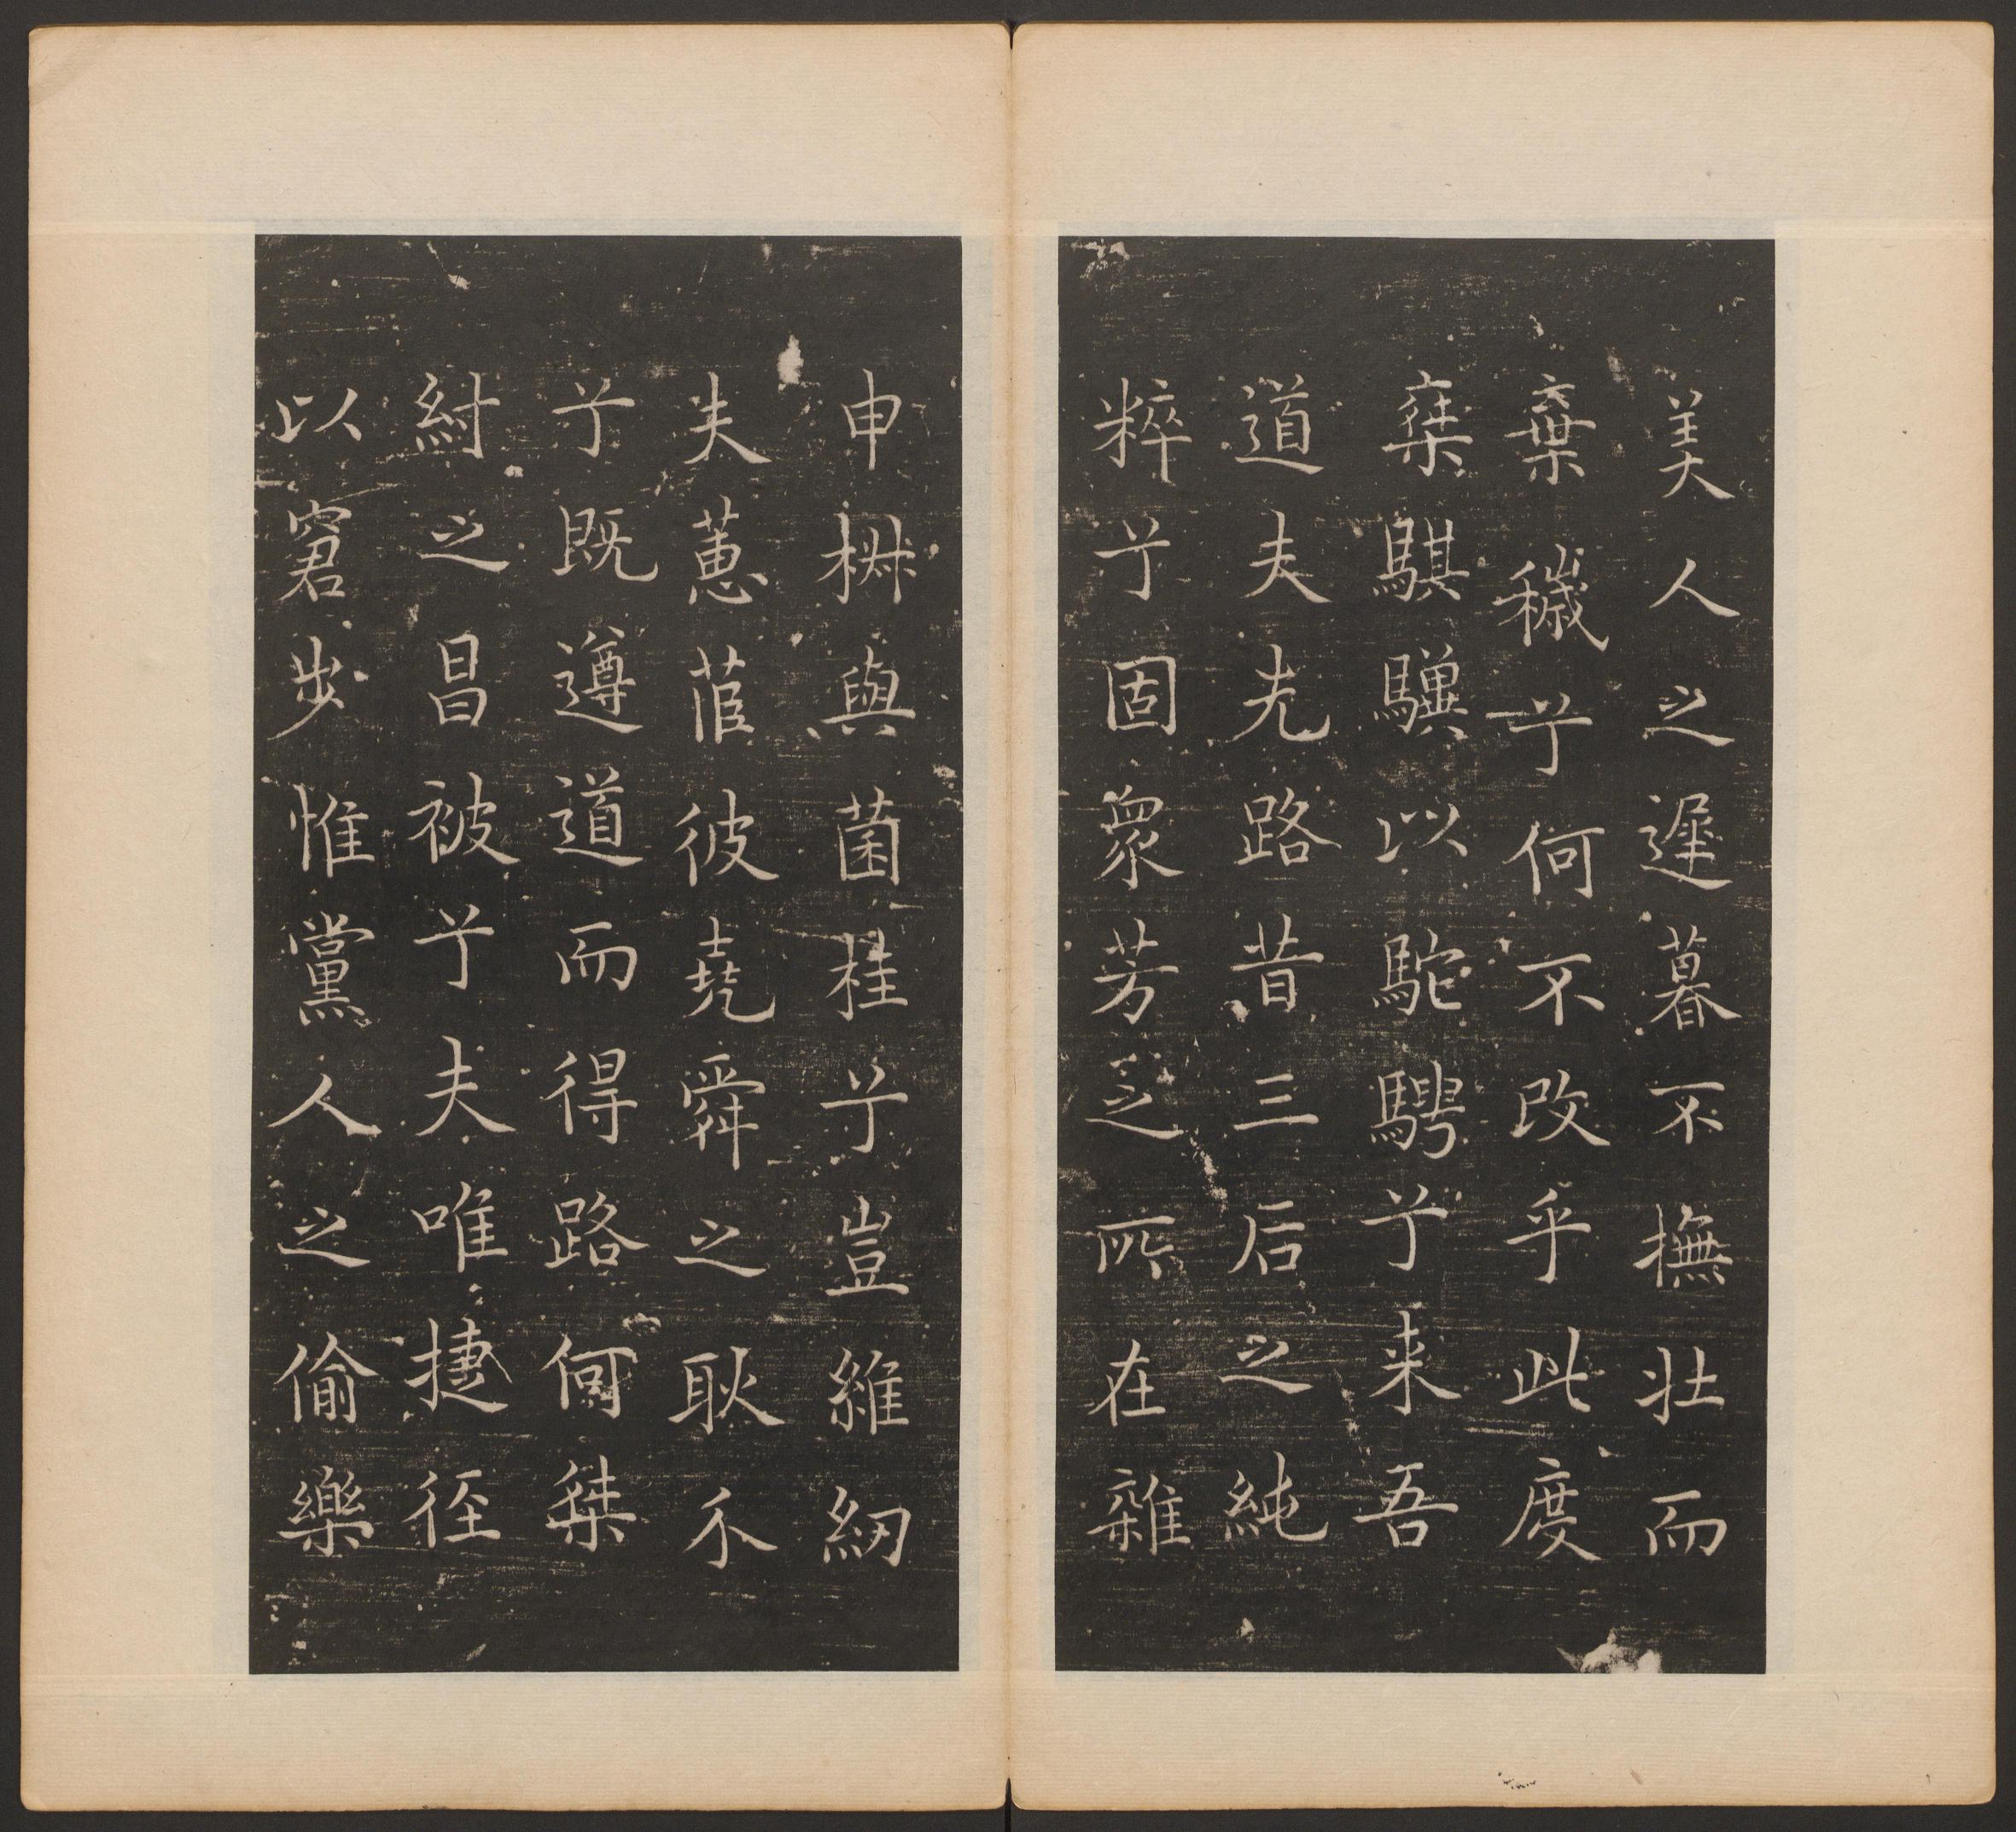 美人之遲暮不撫壯而
棄穢兮何不改乎此度
椉騏驥以駝騁兮来吾
道夫先路昔三后之純
粹兮固衆芳之所在雜
申椒與菌桂兮豈維紉
夫蕙茝彼堯舜之耿介
兮既遵道而得路何桀
紂之昌被兮夫唯捷徑
以窘步惟黨人之偷樂